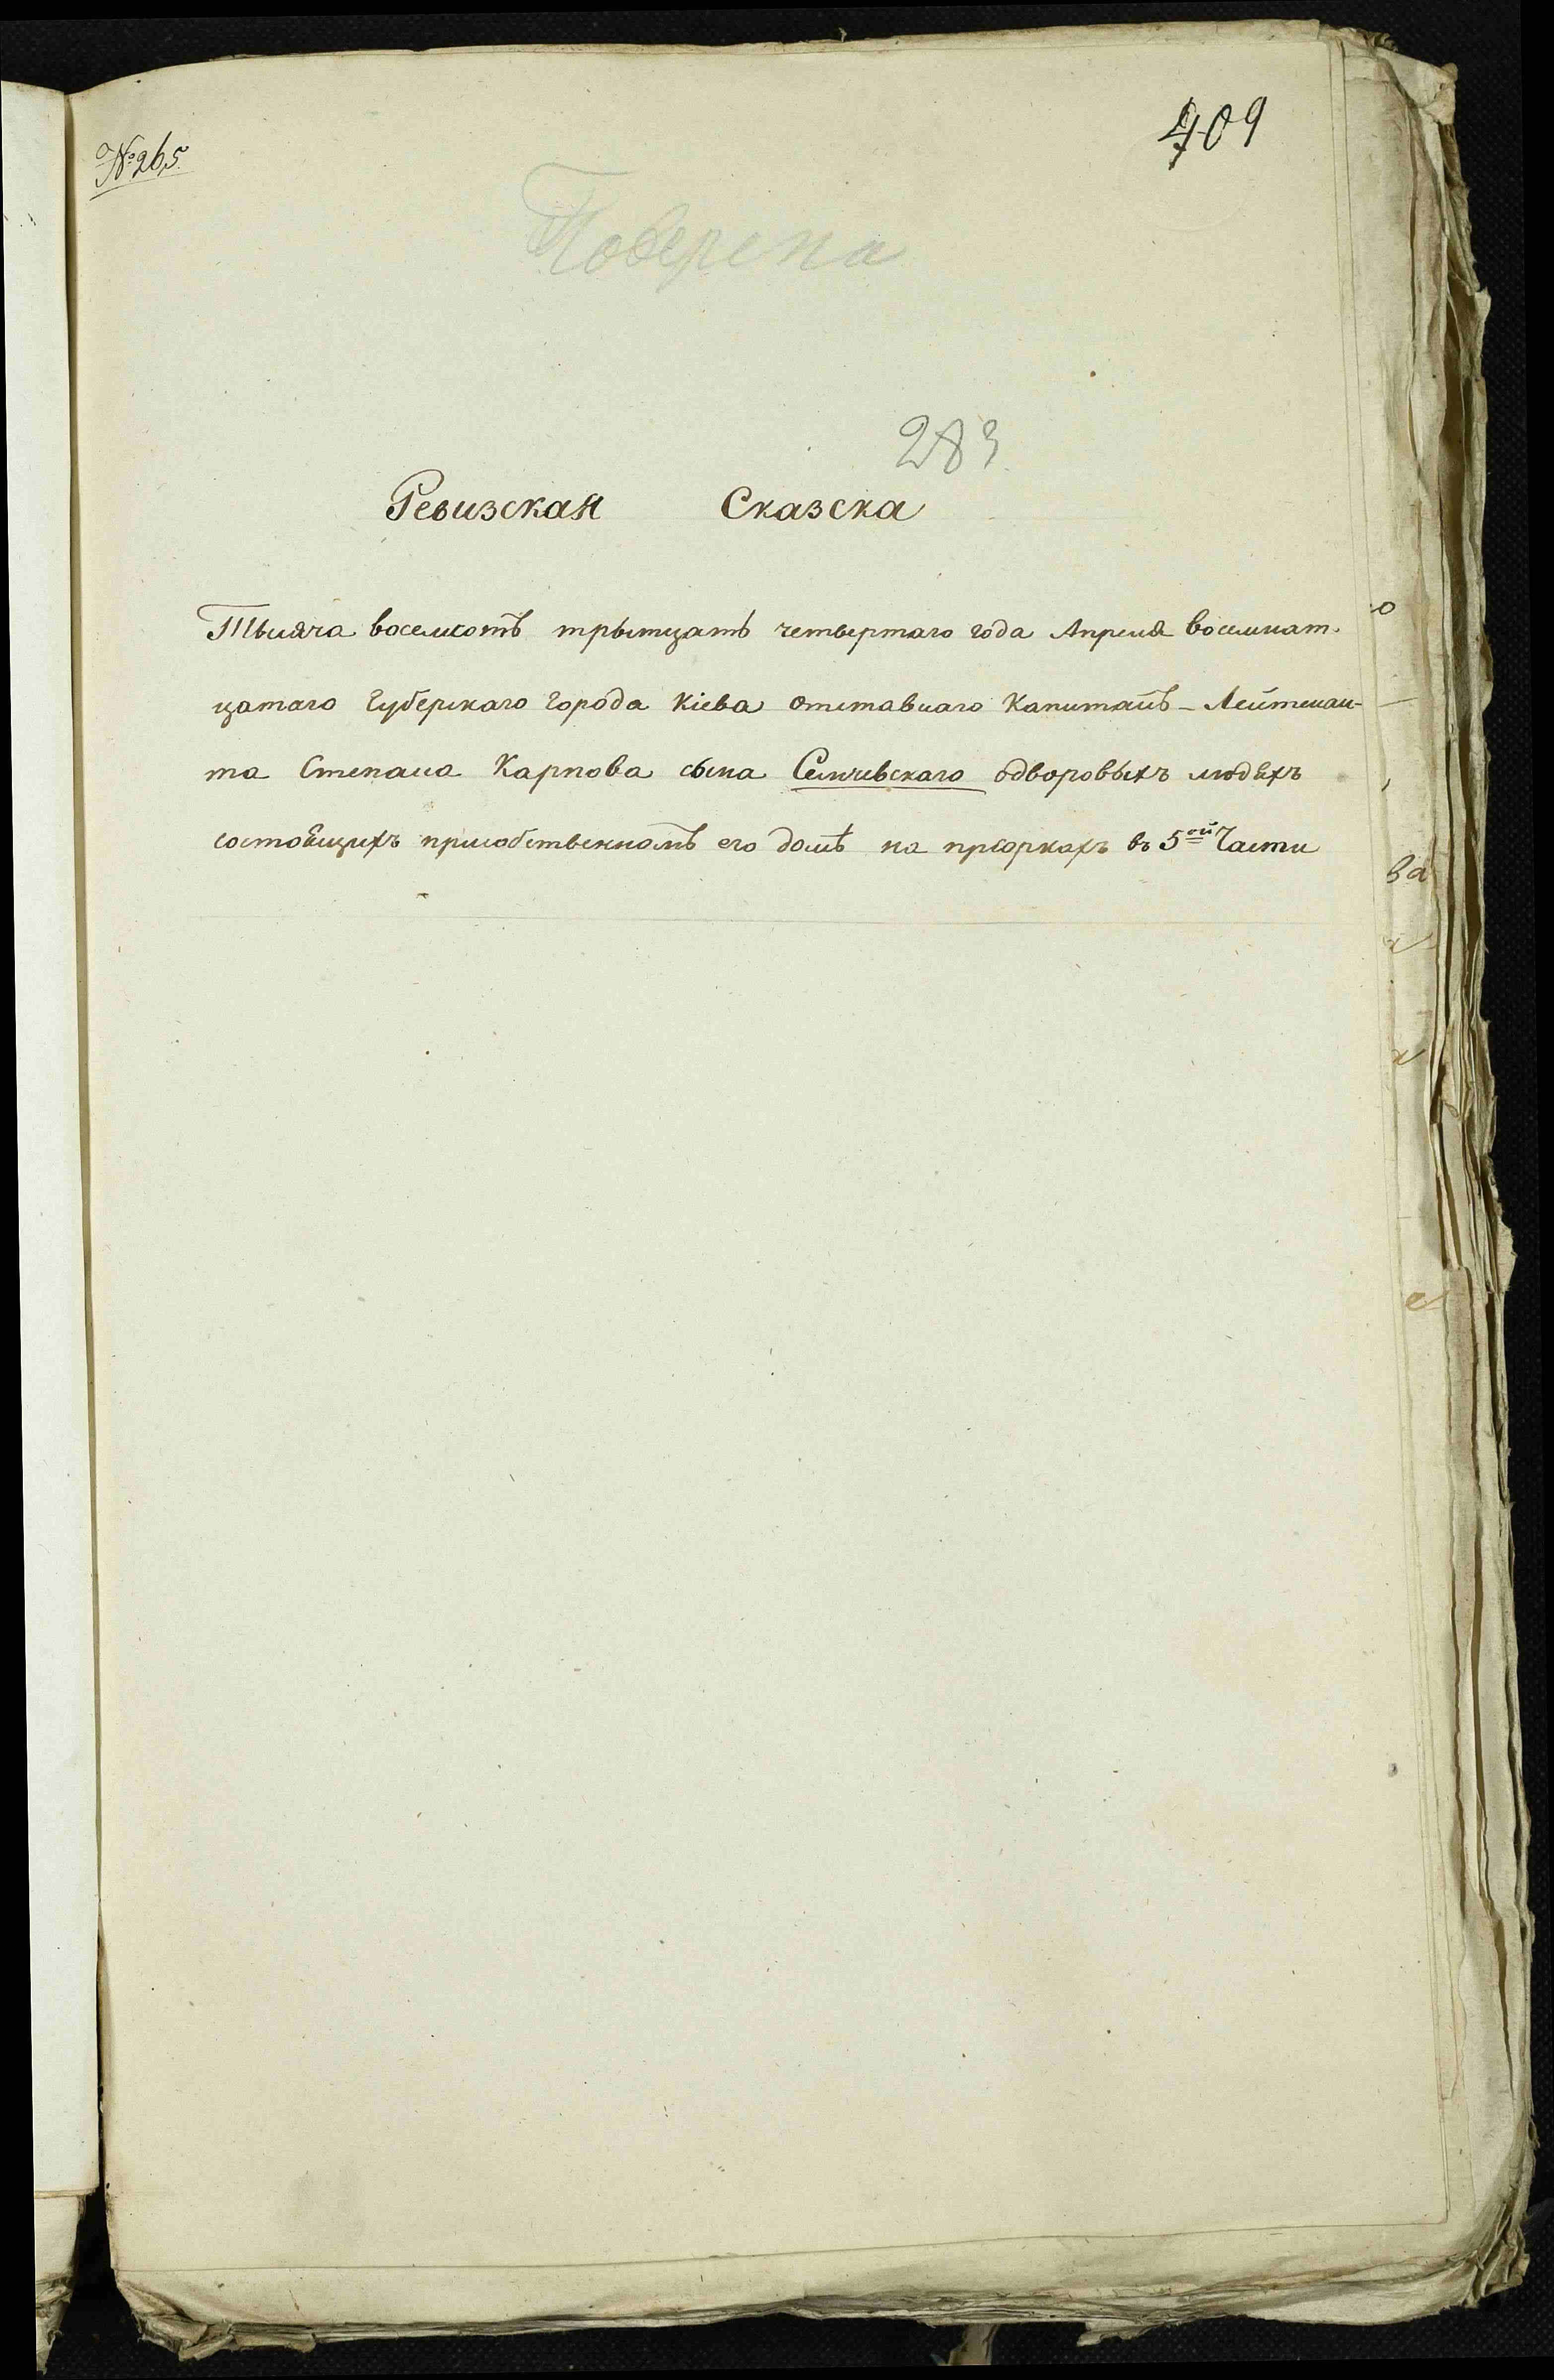 №265
409
Поверена
283
Ревизская Сказска
Тысяча восемсотъ трытцать четвертаго года Апреля восемнат-
цатаго Губерскаго города Кіева отставнаго Капитанъ-Лейтенан-
та Степана Карпова сына Семчевскаго одворовыхъ людяхъ
состоящихъ присобственномъ его доме на преоркахъ въ 5ой Части